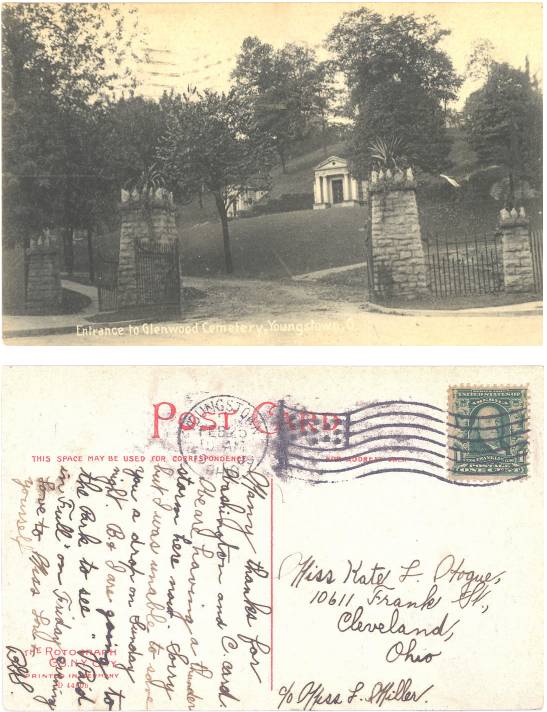 Entrance to Glenwood Cemetery, Youngstown, O.
POST CARD
YOUNGSTOWN
FEB 5
THIS SPACE MAY BE USED FOR CORRESPONDENCE
FOR ADDRESS ONLY
UNITED STATES OF AMERICA
FRANKLIN
POSTAGE
ONE CENT
Many thanks for
Washington and C. card.
Dear, having a thunder
storm here now. Sorry
but I was unable to save
you a drop on Sunday
night. B & I are going to
the Park to see "Paid
in Full" on Friday evening
Love to Miss Lou
yourself
Miss Kate L. Hogue,
10611 Frank St.,
Cleveland,
Ohio
c/o Miss L. Miller.
THE ROTOGRAPH
CO. N.Y. CITY
PRINTED IN GERMANY